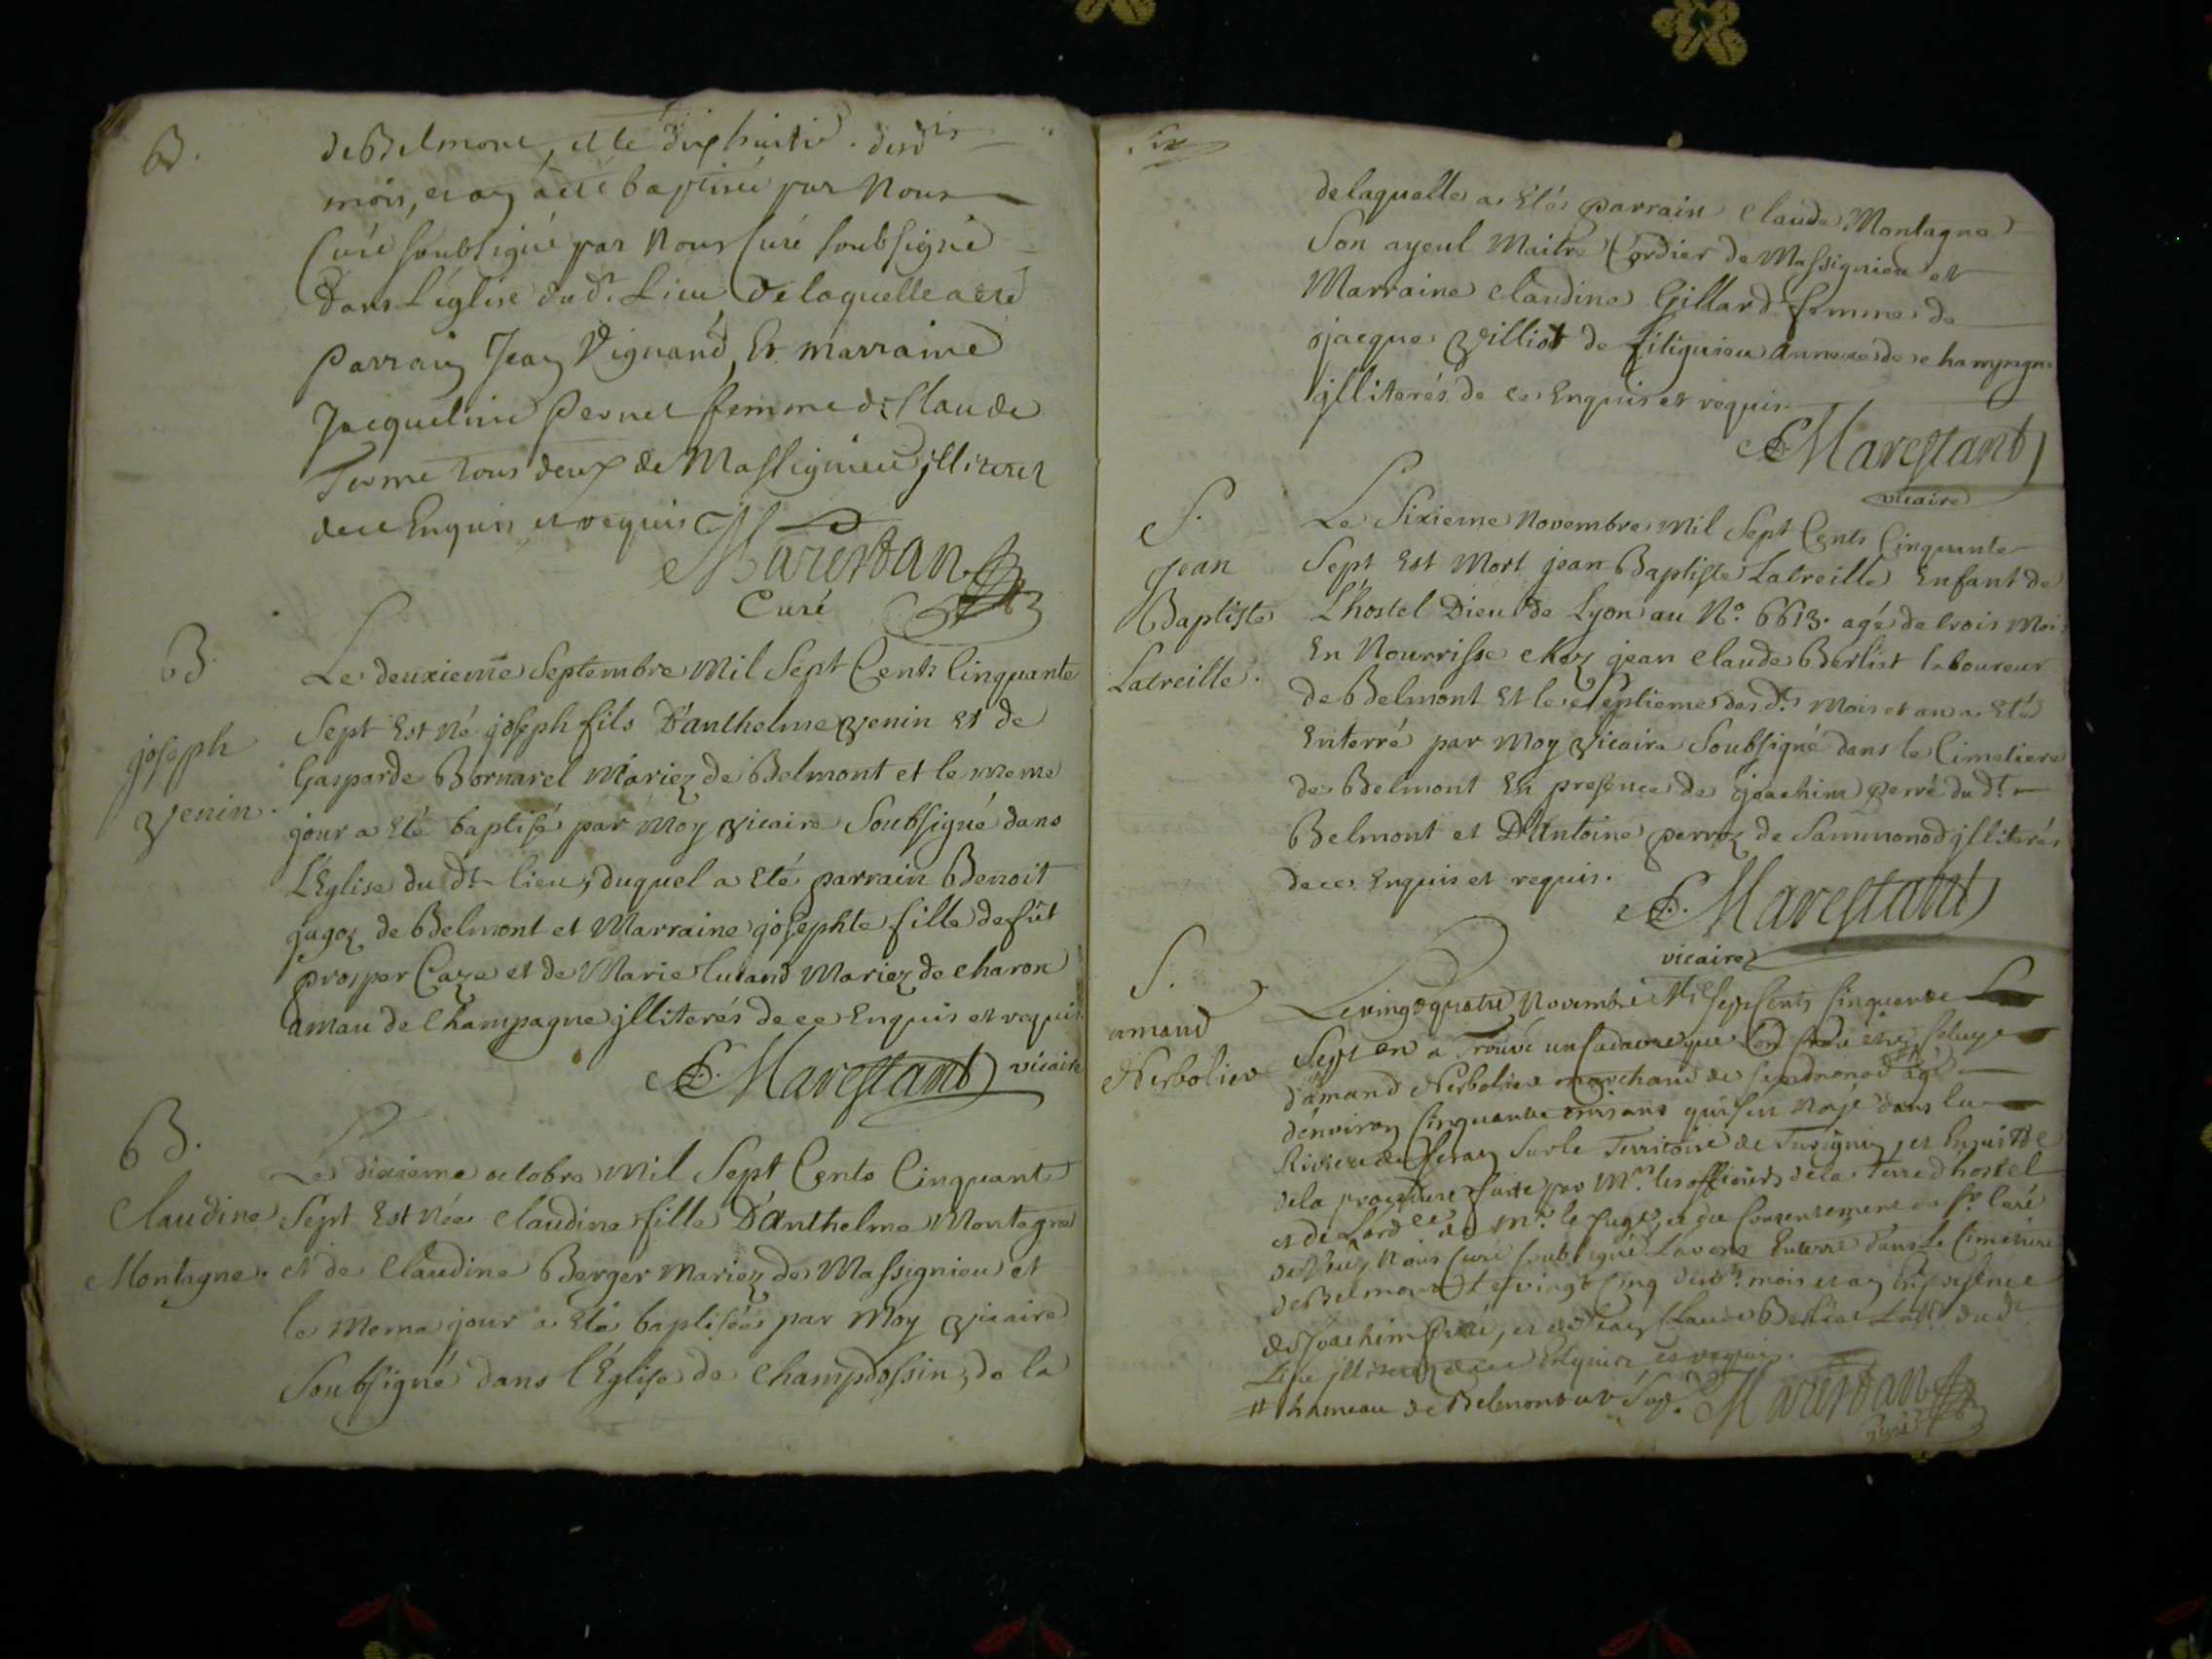 B.
de Belmont, et le dix huitie. desd.ts
mois, et an a été baptisée par Nous
Curé soubsigné par Nous Curé soubsigné
Dans L'église dud. Lieu De laquelle a été
Parrain Jean Vignand, Et marraine
Jacqueline Pernet femme de Claude
tous deux de Massignieu illiterez
de ce Enquis et requis
Marestan
Curé
B.
joseph
Venin.
Le deuxieme Septembre Mil Sept Cents Cinquante
Sept Est Né joseph fils D'anthelme Venin et de
Gasparde Bornarel Mariez de Belmont et le meme
jour a Eté baptisé par Moy Vicaire Soubsigné dans
L'Eglise du dt lieu, duquel a Eté parrain Benoit
gugoz de Belmont et Marraine josephte fille de fût
prosper Caze et de Marie lutand Mariez de charon
amau de Champagne jlliterés de ce Enquis et requis.
E. Marestant vicaire
B.
Claudine
Montagne.
Le dixieme octobre Mil Sept Cents Cinquant
Sept Est Née Claudine fille D'anthelme Montagne
et de Claudine Berger Mariez de Massignieu et
le Meme jour a Eté baptisée par Moy Vicaire
Soubsigné dans l'Eglise de Champdossin, de la
Six
de laquelle a Eté parrain Claude Montagne
Son ayeul Maitre Cordier de Massignieu et
Marraine Claudine Gillard femme de
jacque Villiot de fitignieu annexe de champagne
jlliterés de ce Enquis et requis.
E. Marestant
vicaire
S.
Jean
Baptiste
Latreille.
Le Sixieme Novembre Mil Sept Cents Cinquante
Sept Est Mort jean Baptiste Latreille Enfant de
L'hostel Dieu de Lyon au N.o 6613. agé de trois Mois
En Nourrisse chez jean Claude Berliet laboureur
de Belmont Et le Septieme des d.ts Mois et an a Eté
Enterré par Moy Vicaire Soubsigné dans le Cimetiere
de Belmont En presence de joachim perré du dt.
Belmont et D'Antoine perroz de Sammonod jlliterés
de ce Enquis et requis.
E. Marestant
vicaire
S.
amand
Nerbolier
Le vingt quatre Novembre Mil Sept Cents Cinquante
Sept on a Trouvé un Cadavre que l'on être Celuy
d'amand Nerbolier marchand de Sammonod # agé
d'environ Cinquante trois ans qui s'est Noyé dans la
Riviere du Seran Sur le Territoire de et Ensuitte
de la procedure faite par M.rs les officiers de la Terre d'hostel
et de L'ord.ce de M.r le juge, et du Consentement du S.r Curé
de Nous Curé soubsigné L'avons Enterré dans Le Cimetiere
de Belmont Le vingt Cinq desd.ts mois et an En presence
de Joachim perré, et de Jean Claude Berliet Lab.r dud.t
Lieu jlliterez de ce Enquis et requis.
# hameau de Belmont Marestan
Curé